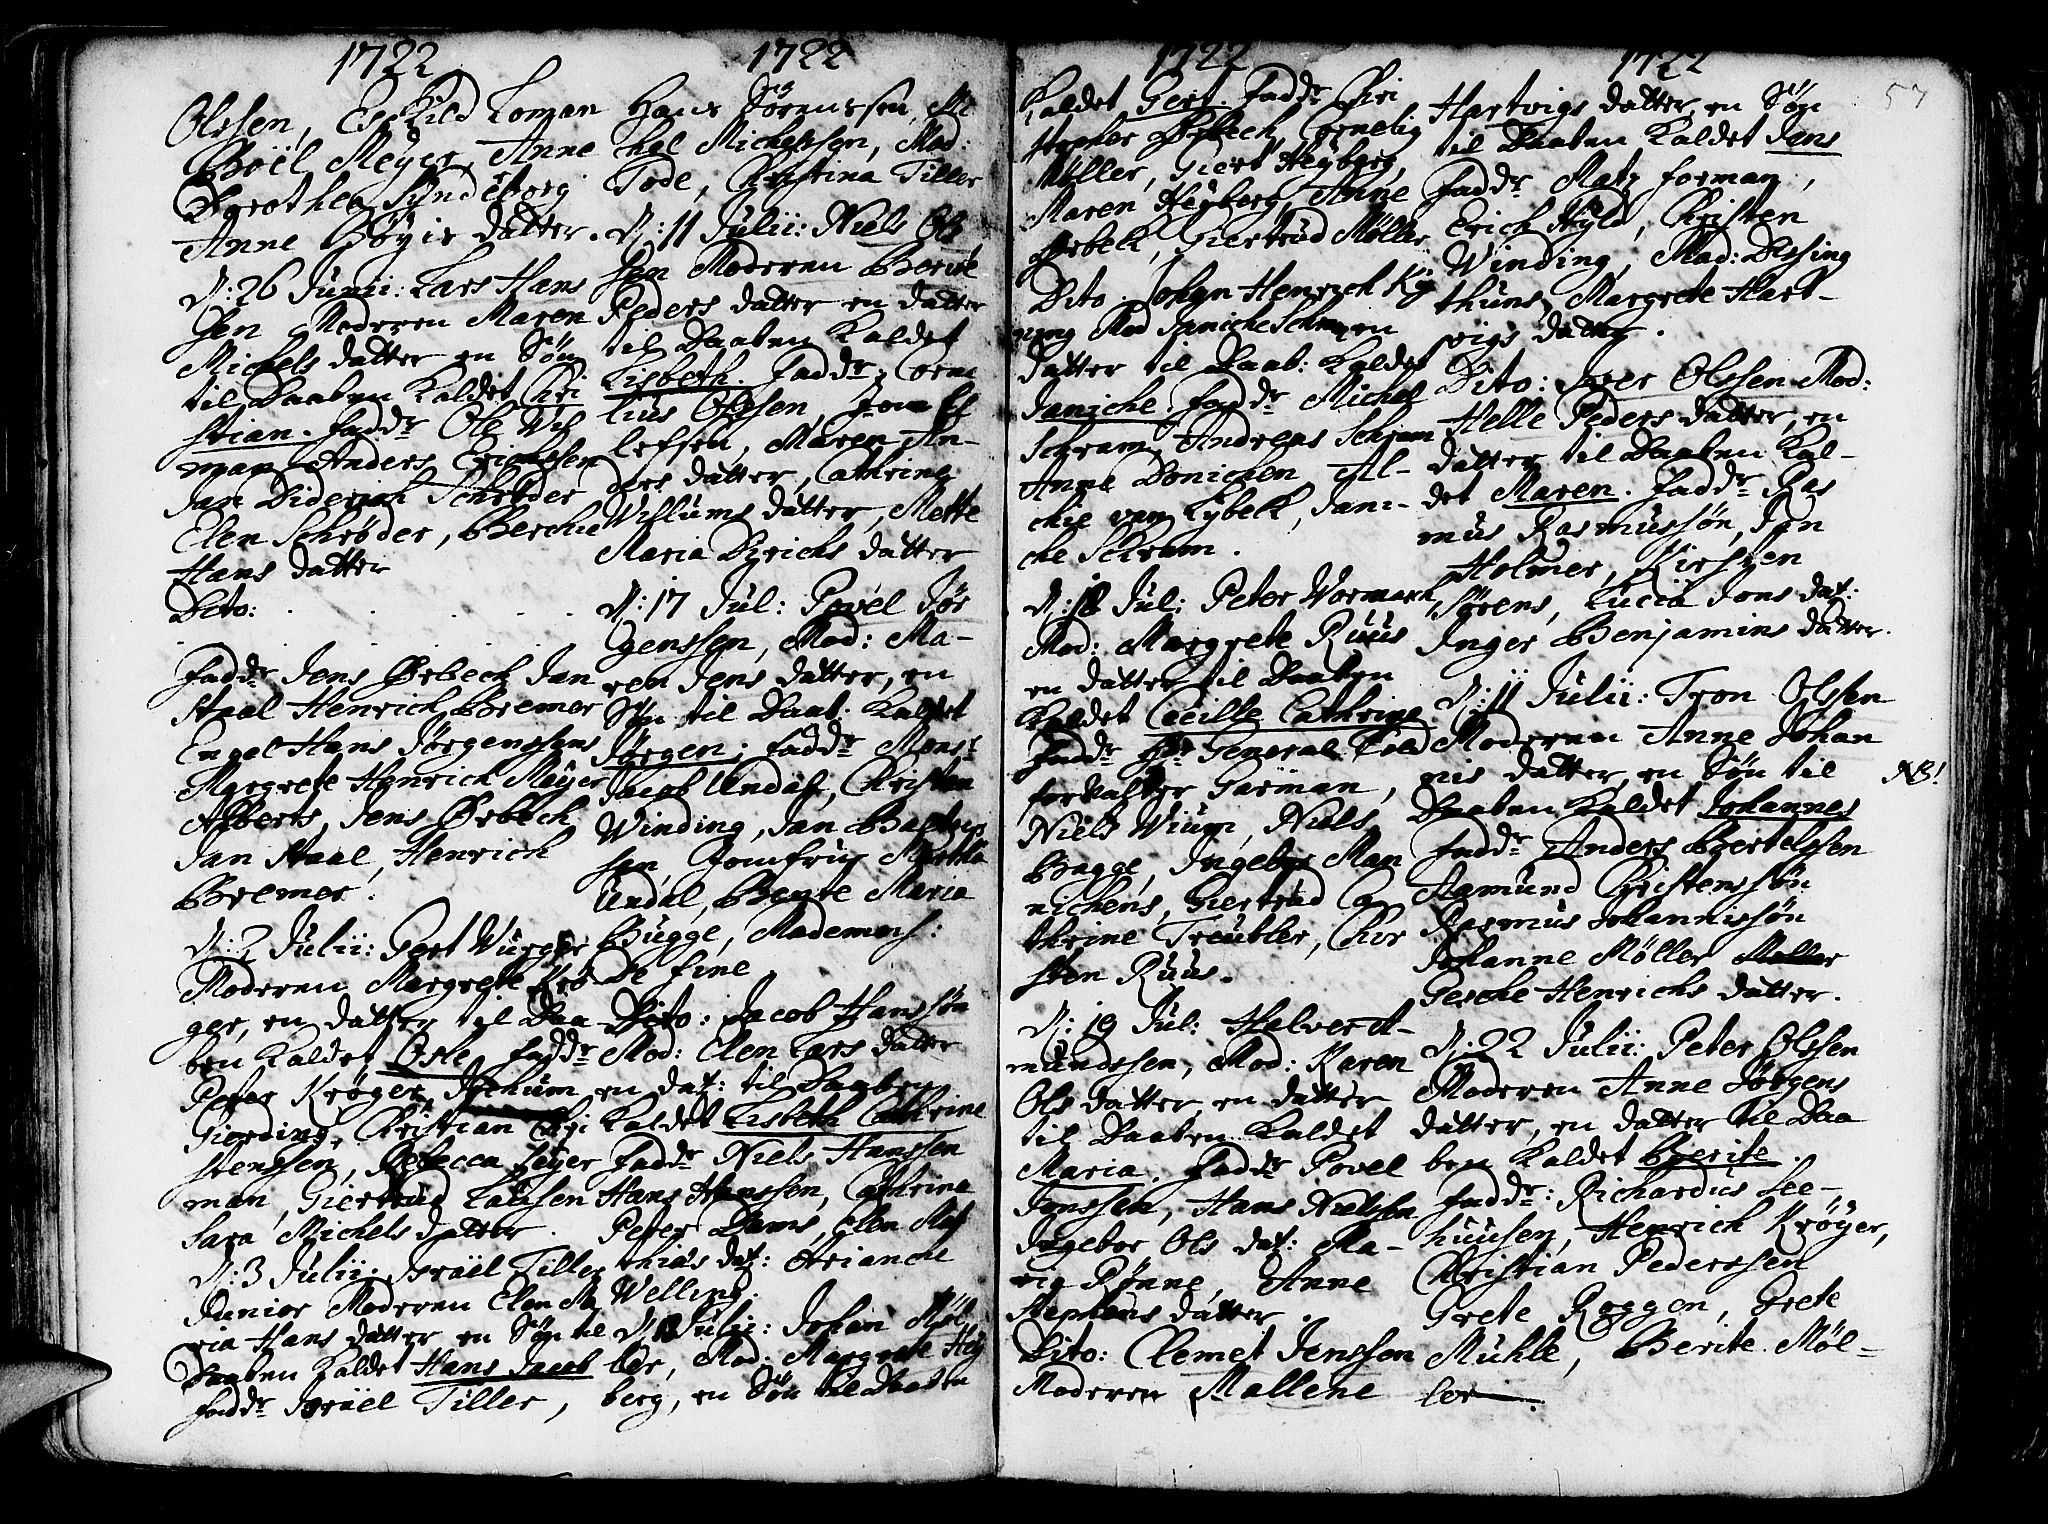 1722
Olssen, Eskild Loman
Boël Meyer, Anne
Dorothea Synderborg
Anne Bøgis datter.
D: 26 Junii: Lars Hans
sen Moderen Maren
Michels datter en Søn
til Daaben Kaldet Chri
stian. Faddr Ole Vis
man Anders Erichssen
Jan Diderich Schrøder
Elen Schrøder, Berthe
Hans datter
Dito:
Faddr Jens Ørbech Jan
Staal Henrich Bremer
Engel Hans Jørgenssens
Margrete Henrich Meyer
Alberts, Jens Ørbech
Jan Staal, Henrich
Bremer.
D: 2 Julii: Gert Wurger
Moderen Margrete Krø
ger, en datter til Daa
ben Kaldet Osle. Faddr
Peter Krøger, Jochum
Gierding, Christian Chri
stenssen, Rebecca Heger
man, Giertrud Laussen
Sara Michels datter.
D: 3 Julii: Israël Tiller
Junior Moderen Elen Ma
ria Hans datter en Søn til
Daaben Kaldet Hans Jacob
Faddr Israël Tiller,
1722
Hans Sørenssen, Mi
chel Michelssen, Mad:
Tode, Christina Tiller
D: 11 Julii: Niels Ol
sen Moderen Berite
Peders datter en datter
til Daaben Kaldet
Lisbeth. Faddr, Corne
lius Olssen, Jon El
lefsen, Maren An-
ders datter, Cathrine
Willums datter, Mette
Maria Dirichs datter
D: 17 Jul: Povel Jør
genssen, Mod: Ma-
ren Jens datter, en
Søn til Daab: Kaldet
Jørgen; Faddr Monsr
Jacob Undal, Christen
Winding, Jan Bastrup
sen, Jomfru Martha
Undal, Bente Maria
Bugge, Mademois:
De fine
Dito: Jacob Hanssøn
Mod: Elen Lars datter
en dat: til Daaben
Kaldet Lisbeth Cathrine
Faddr Niels Hanssen
Hans Hanssen, Cathrina
Peter Dams, Elen Mat
thias dat: Arianche
Welling.
D: 18 Julii: Johan Møl
ler, Mod: Margrete Hey
berg, en Søn til Daaben
1722
Kaldet Gert. Faddr Chri
stopher Ørbech, Cornelig
Møller, Giert Heyberg,
Maren Heyberg, Anne
Ørbek, Giertrud Møller
Dito Johan Henrich Ky
Mod Janiche Schram en
datter til Daab: Kaldet
Janiche. Faddr Michel
Schram, Andreas Schram
Anne Donichen Al-
che van Lybek, Jani-
che Schram.
D: 18 Jul: Peter Wormark,
Mod: Margrete Ruus
en datter til Daaben
Kaldet Cecille Cathrine
Faddr Hr General Told
forvalter Garman,
Niels Wium, Niels
Bagge, Ingebor Man
nichens, Giertrud Ca
thrine Treubler, Chir
sten Ruus.
D: 19 Jul: Halvor Aa-
mundssen, Mod: Karen
Ols datter, en datter
til Daaben Kaldet
Maria. Faddr Povel
Jonssen, Hans Nielsen
Ingebor Ols dat: Ma-
rig Rønne, Anne
Stephens datter.
Dito: Clemet Jenssen
Moderen Mallene
1722
57
Hartvigs datter, en Søn
til Daaben Kaldet Jens
Faddr Matz forman,
Erich Hyld, Christen
Winding, Mad: Dessing
thuns, Margrete Hart-
vigs datter.
Dito: Iver Olssen Mod:
Helle Peders datter, en
datter til Daaben Kal-
det Maren. Faddr Ras
mus Rasmussøn, Jan
Holmer, Kirsten
Sørens, Lucia Jons dat:
Inger Benjamins datter.
D: 11 Julii: Tron Olssen
Moderen Anne Johan
nis datter, en Søn til
NB!
Daaben Kaldet Johannes
Faddr Anders Bertelssen
Aamund Christenssøn
Rasmus Johannissøn
Johanne Møller Møller
Gesche Henrichs datter.
D: 22 Julii: Peter Olssen
Moderen Anne Jørgens
datter, en datter til Daa
ben Kaldet Berite.
Faddr: Richardus See-
huusen, Henrich Krøyer,
Christian Pederssen
Grete Roggen, Grete
Mühle, Berite Møl-
ler.